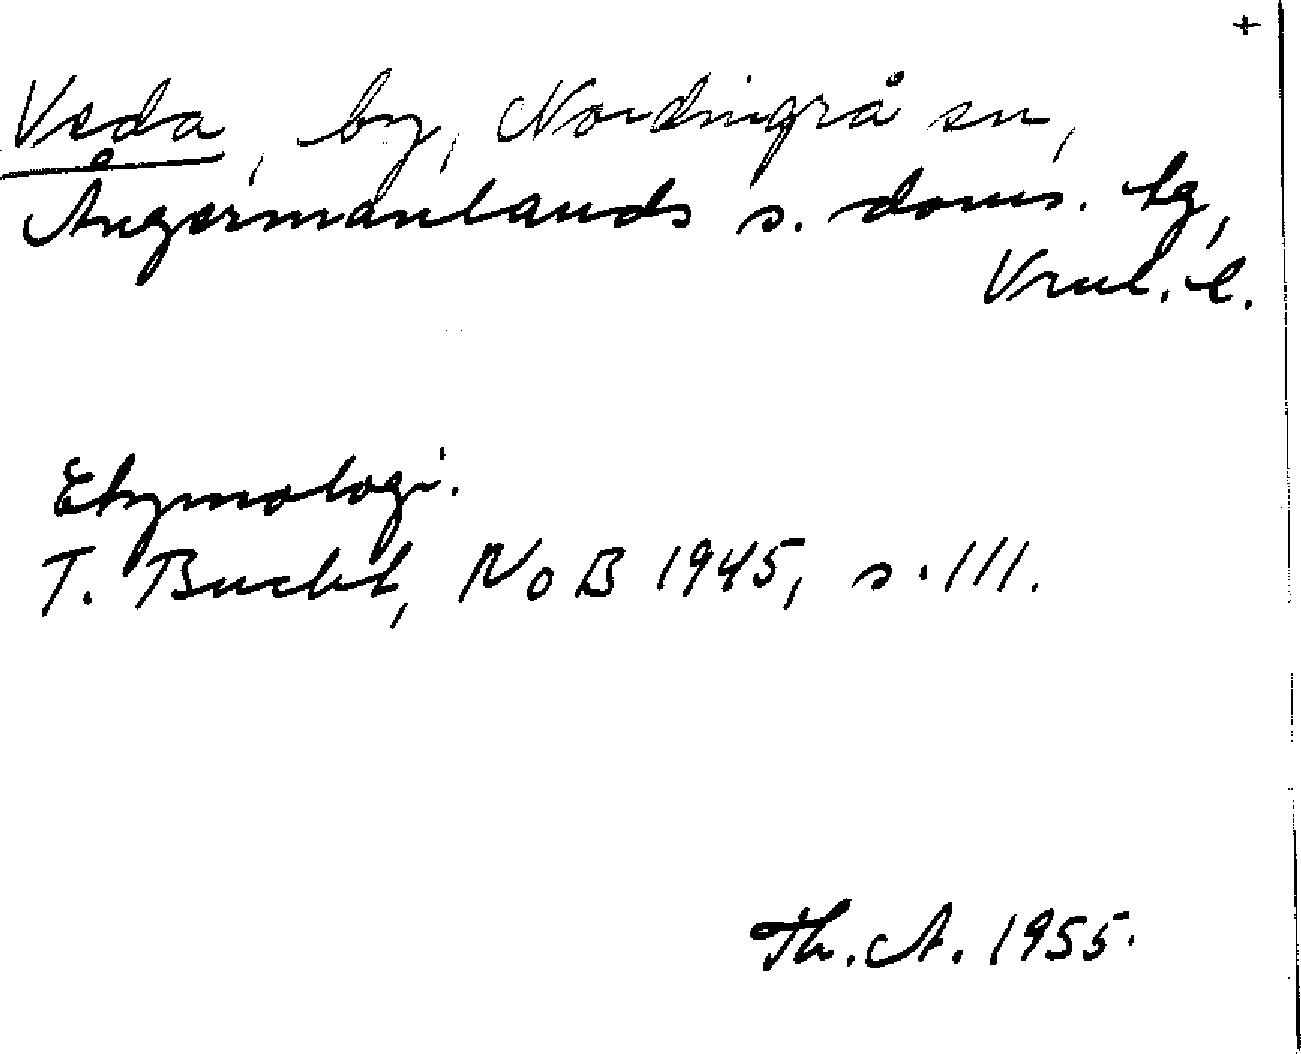 +
Veda, by, Nordingrå sn,
Ångermanlands s. doms. tg,
Vrnl. l.
Etymologi.
T. Bucht, NoB 1945, s. 111.
Th. A. 1955.